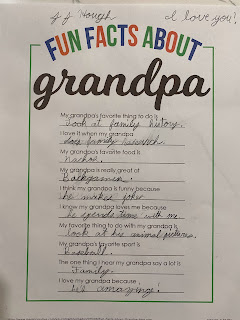 JJ Hough I love you!
FUN FACTS ABOUT
grandpa
My grandpa's favorite thing to do is
Look at family history.
I love it when my grandpa
does family research.
My grandpa's favorite food is
Nachos.
My grandpa is really great at
Backgamin.
I think my grandpa is funny because
he makes jokes
I know my grandpa loves me because
he spends time with me.
My favorite thing to do with my grandpa is
look at his animal pictures.
My grandpa's favorite sport is
baseball.
The one thing I hear my grandpa say a lot is
Family.
I love my grandpa because
he's amazyinge!